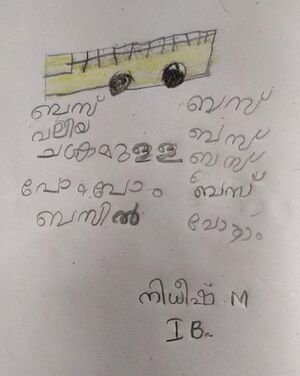 ബസ് ബസ്
വലിയ ബസ്
ചക്രമുളള ബസ്
പോം പോം ബസ്
ബസിൽ
നിധീഷ് M
I B.